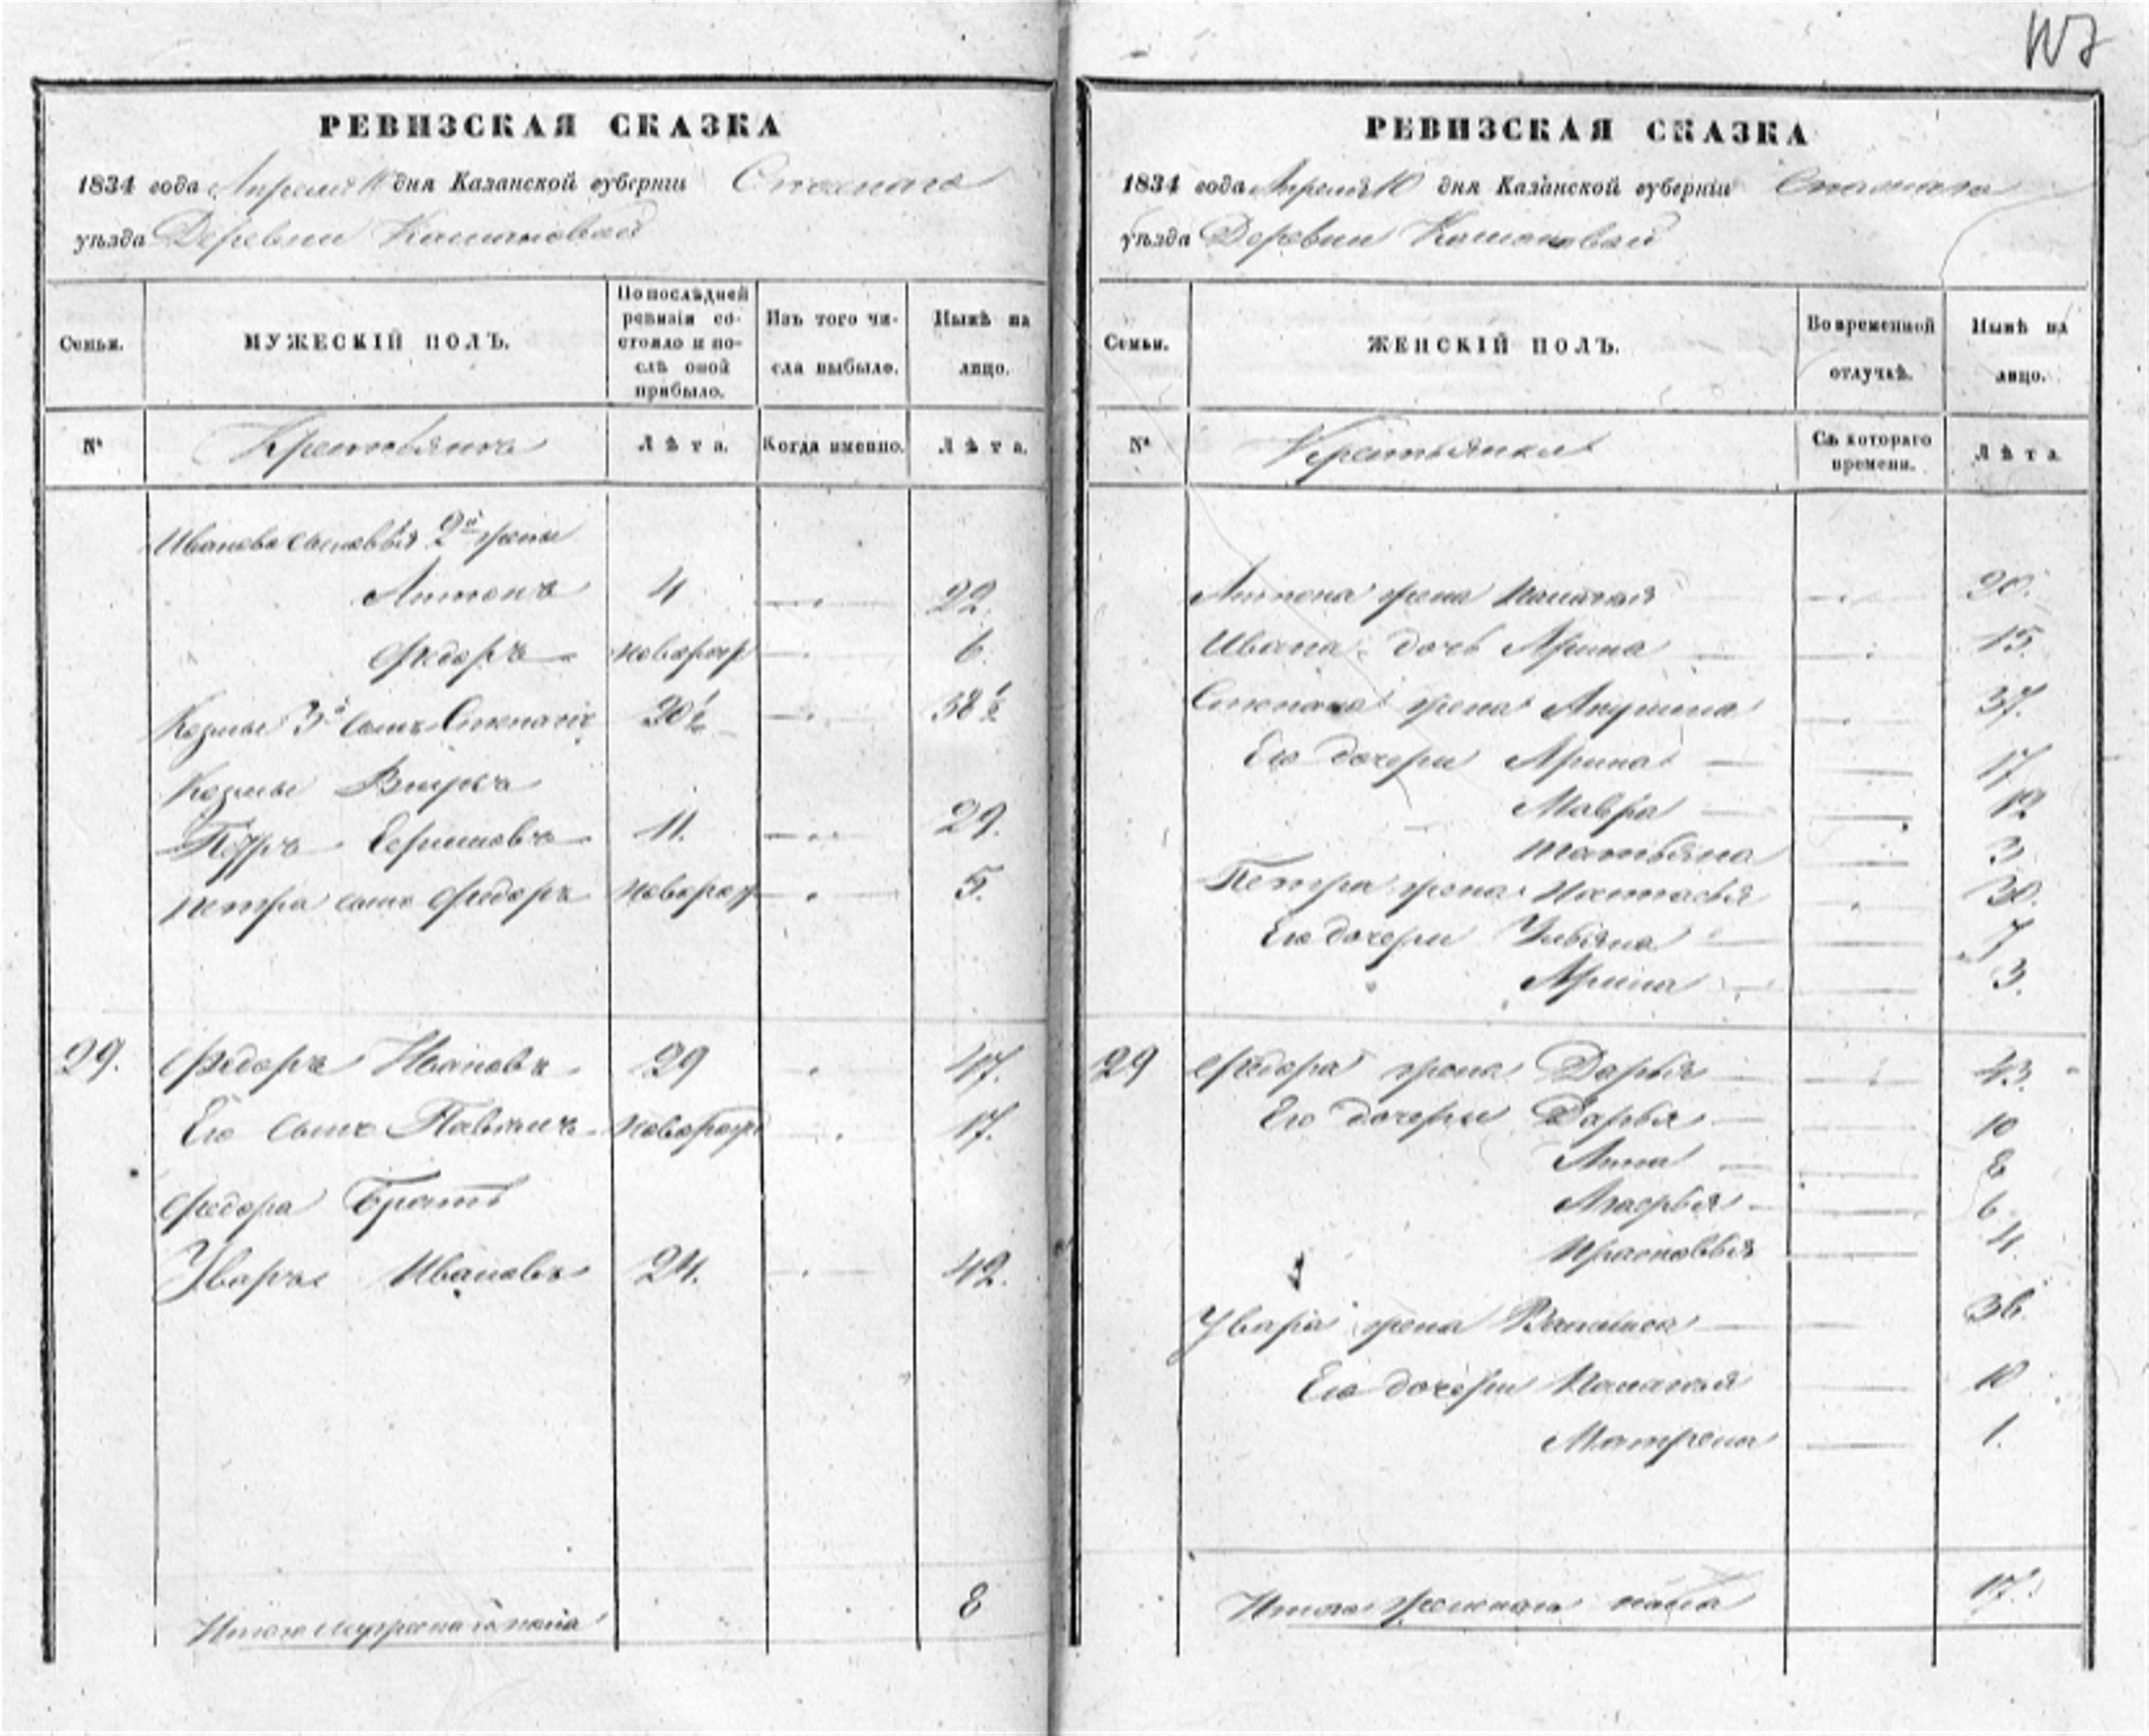 РЕВИЗСКАЯ СКАЗКА
1834 года Апреля 10 дня Казанской губернiи Спаскаго
уѣзда Деревни
Семьи.
МУЖЕСКIЙ ПОЛЪ.
По послѣдней ревизiи состояло и послѣ оной прибыло.
Изъ того числа выбыло.
Нынѣ на лицо.
№
Крестьяне
Лѣта.
Когда именно.
Лѣта.
Ивановы сыновья 2й жены
Антонъ 4 22.
Федоръ новорож 6.
Козмы 3й сынъ Степанъ 20½ 38½
Козмы
Петръ 11. 29.
Петра сынъ Федоръ новорож 5.
29. Федоръ Ивановъ 29 47.
Его сынъ новорож 17.
Федора братъ
Уваръ Ивановъ 24. 42.
Итого мужеска пола 8
107
РЕВИЗСКАЯ СКАЗКА
1834 года Апреля 10 дня Казанской губернiи Спаскаго
уѣзда Деревни
Семьи.
ЖЕНСКIЙ ПОЛЪ.
Во временной отлучкѣ.
Нынѣ на лицо.
№
Крестьянки
Съ котораго времени.
Лѣта
Антона жена Палагея 20.
Ивана дочь Арина 15.
Степана жена Акулина 37.
Его дочери Арина 17
Мавра 12
Татьяна 3
Петра жена Настасья 30.
Его дочери Ульяна 7
Арина 3.
29 Федора жена Дарья 43.
Его дочери Дарья 10
Анна 8
Марья 6
Прасковья 4.
Увара жена Василиса 36
Его дочери Палагея 10
Матрена 1.
Итого женска пола 17.